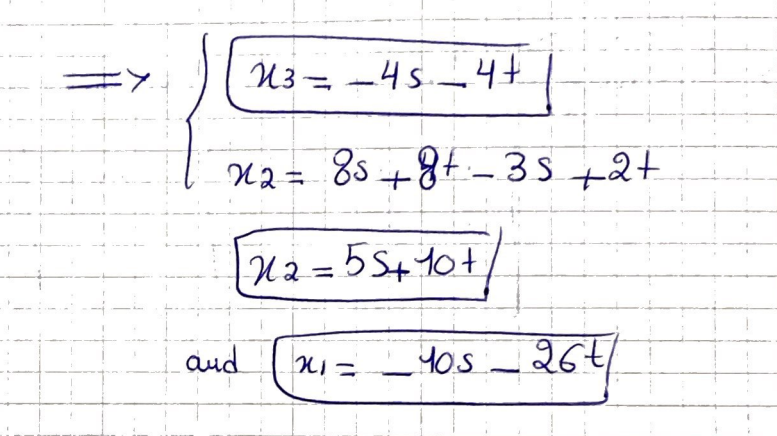 ⟹ { x3 = -4s - 4t
x2 = 8s + 8t - 3s + 2t
x2 = 5s + 10t
and x1 = -10s - 26t